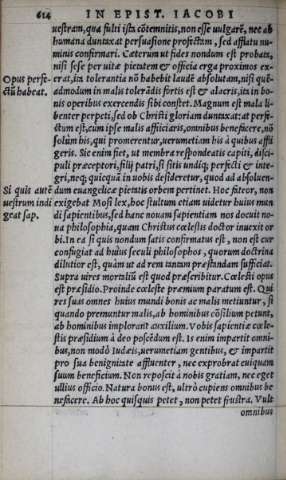 614 IN EPIST. IACOBI
uestram, qua fulti ista cōtemnitis, non esse uulgarē, nec ab
humana duntaxat persuasione profectam, sed afflatu nu
minis confirmari. Cæterum ut fides nondum est probata,
nisi sese per uitæ pietatem & officia erga proximos ex-
Opus perfe-
ctū habeat.
erat, ita tolerantia nō habebit laudē absolutam, nisi quē-
admodum in malis tolerādis fortis est & alacris, ita in bo-
nis operibus exercendis sibi constet. Magnum est mala li-
benter perpeti, sed ob Christi gloriam duntaxat: at perfe-
ctum est, cum ipse malis afficiaris, omnibus benefacere, nō
solùm his, qui promerentur, uerumetiam his à quibus affli
geris. Sic enim fiet, ut membra respondeatis capiti, disci-
puli præceptori, filij patri, si sitis undiq; perfecti & inte-
gri, neq; quicquā in uobis desideretur, quod ad absoluen-
Si quis autē
uestrum indi
geat sap.
dum euangelicæ pietatis orbem pertinet. Hoc fateor, non
exigebat Mosi lex, hoc stultum etiam uidetur huius mun
di sapientibus, sed hanc nouam sapientiam nos docuit no-
ua philosophia, quam Christus cœlestis doctor inuexit or
bi. In ea si quis nondum satis confirmatus est, non est cur
confugiat ad huius seculi philosophos, quorum doctrina
dilutior est, quàm ut ad rem tantam præstandam sufficiat.
Supra uires mortaliū est quod præscribitur. Cœlesti opus
est præsidio. Proinde cœleste præmium paratum est. Qui
res suas omnes huius mundi bonis ac malis metiuntur, si
quando premuntur malis, ab hominibus cōsilium petunt,
ab hominibus implorant auxilium. Vobis sapientiæ cœle-
stis præsidium à deo poscēdum est. Is enim impartit omni-
bus, non modò Iudæis, uerumetiam gentibus, & impartit
pro sua benignitate affluenter, nec exprobrat cuiquam
suum beneficium. Non reposcit à nobis gratiam, nec eget
ullius officio. Natura bonus est, ultrò cupiens omnibus be
neficere. Ab hoc quisquis petet, non petet frustra. Vult
omnibus